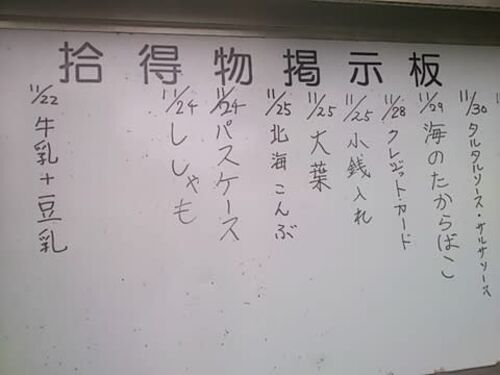 拾得物掲示板
11/30 タルタルソース・サルサソース
11/29 海のたからばこ
11/28 クレジットカード
11/25 小銭入れ
11/25 大葉
11/25 北海こんぶ
11/24 パスケース
11/24 ししゃも
11/22 牛乳+豆乳